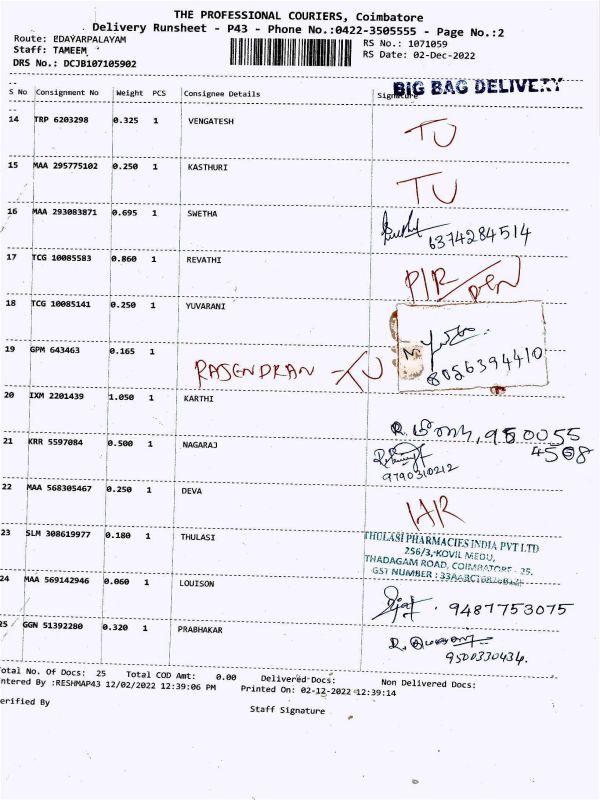 THE PROFESSIONAL COURIERS, Coimbatore
Delivery Runsheet - P43 - Phone No.:0422-3505555 - Page No.:2
Route: EDAYARPALAYAM RS No.: 1071059
Staff: TAMEEM RS Date: 02-Dec-2022
DRS No.: DCJB107105902
BIG BAG DELIVERY
S No Consignment No Weight PCS Consignee Details Signature
14 TRP 6203298 0.325 1 VENGATESH TU
15 MAA 295775102 0.250 1 KASTHURI TU
16 MAA 293083871 0.695 1 SWETHA
6374284514
17 TCG 10085583 0.860 1 REVATHI P/R
18 TCG 10085141 0.250 1 YUVARANI
8056394410
19 GPM 643463 0.165 1 RAJENDRAN - TU
20 IXM 2201439 1.050 1 KARTHI
21 KRR 5597084 0.500 1 NAGARAJ
9790310212
22 MAA 568305467 0.250 1 DEVA
23 SLM 308619977 0.180 1 THULASI THULASI PHARMACIES INDIA PVT LTD
256/3, KOVIL MEDU,
THADAGAM ROAD, COIMBATORE - 25.
GST NUMBER :
24 MAA 569142946 0.060 1 LOUISON 9487753075
25 GGN 51392280 0.320 1 PRABHAKAR
9500330434.
otal No. Of Docs: 25 Total COD Amt: 0.00 Delivered Docs: Non Delivered Docs:
ntered By :RESHMAP43 12/02/2022 12:39:06 PM Printed On: 02-12-2022 12:39:14
erified By Staff Signature